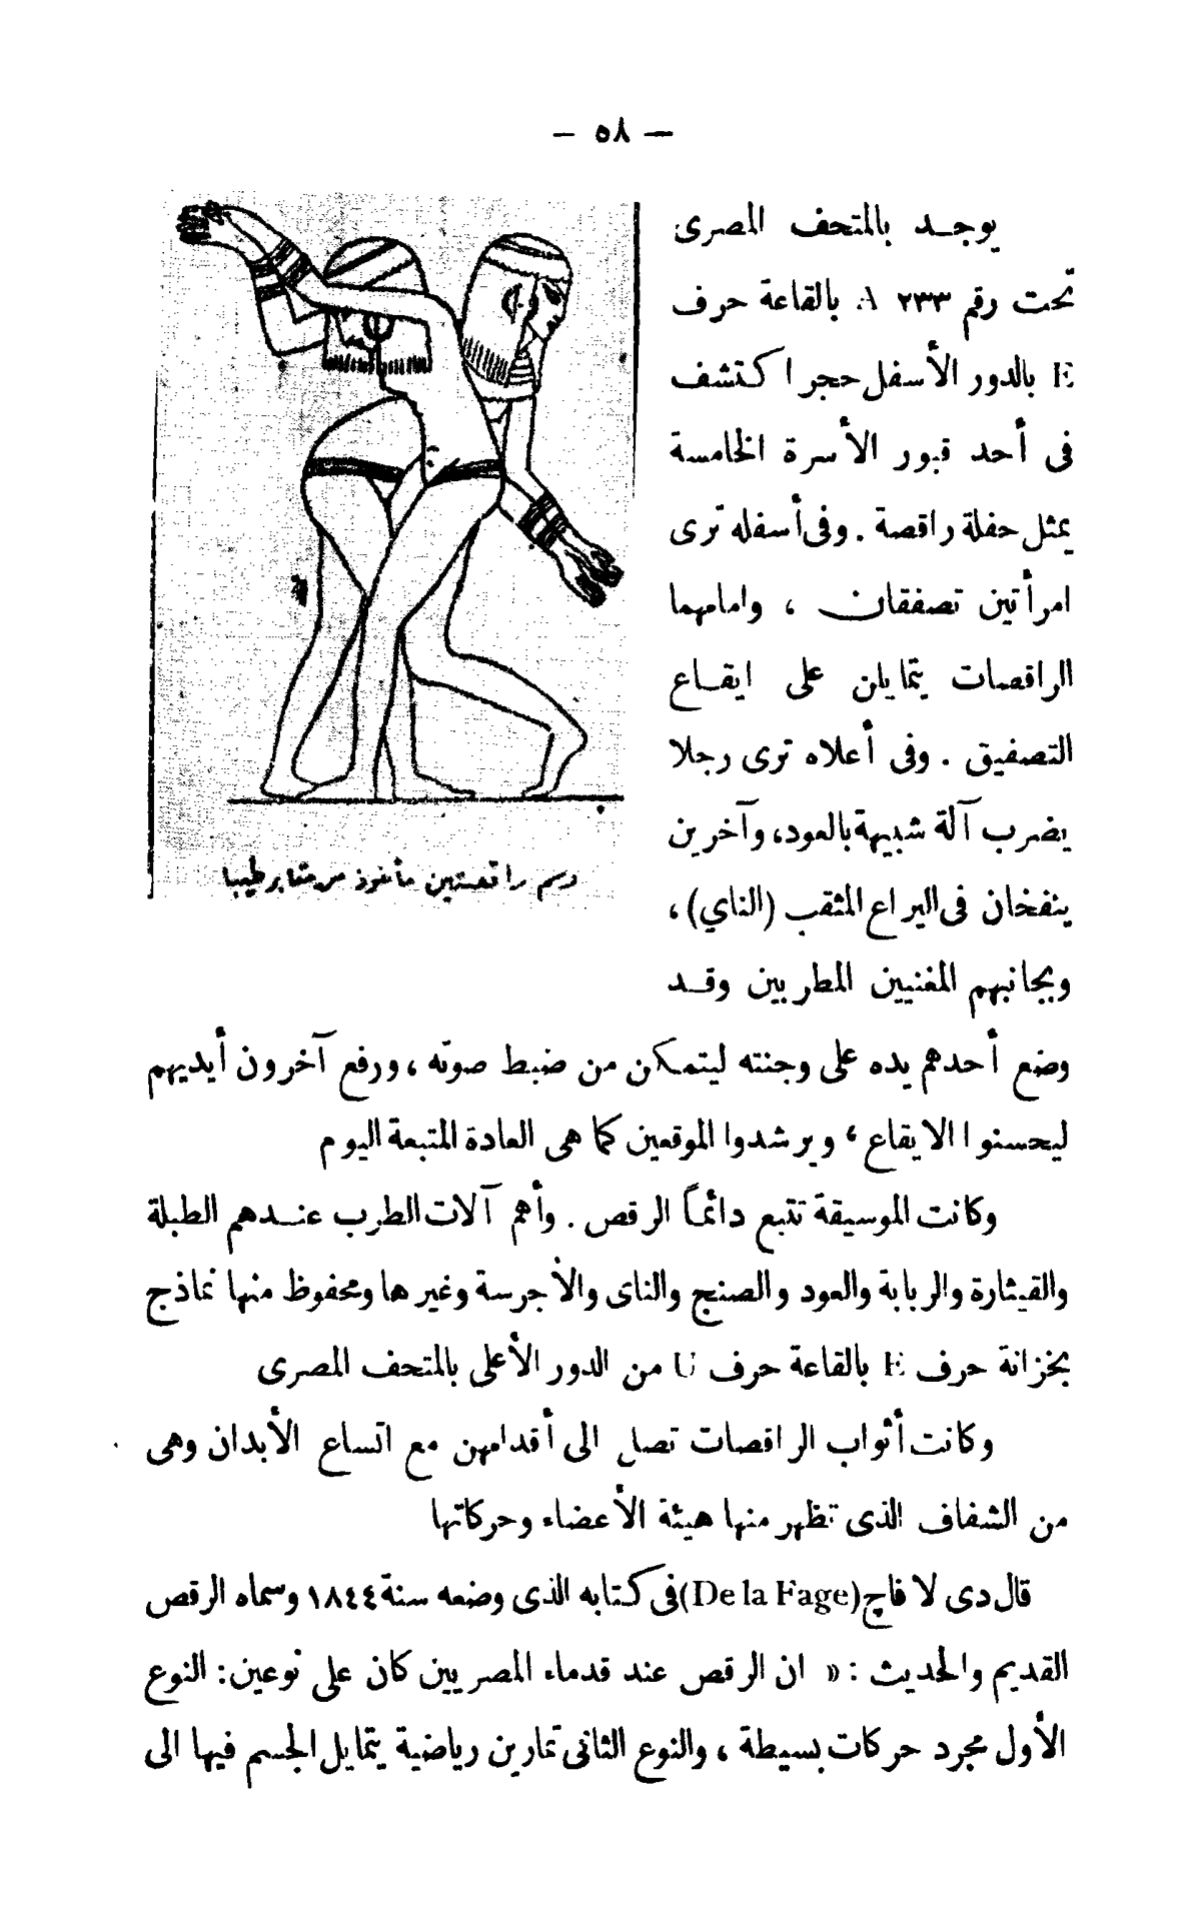 — ٥٨ —
يوجـد بالمتحف المصرى
تحت رقم ٢٣٣ A. بالقاعة حرف
E بالدور الأسفل حجرا كتشف
فى أحد قبور الأسرة الخامسة
يمثل حفلة راقصة . وفى أسفله ترى
امرأتين تصفقان ، وامامهما
الراقصات يتمايلن على ايقـاع
التصفيق . وفى أعلاه ترى رجلا
يضرب آلة شبيهة بالعود، وآخرين
ينفخان فى اليراع المثقب (الناي) ،
وبجانبهم المغنيين المطربين وقـد
رسم راقصتين مأخوذ من مقابر طيبا
وضع أحدهم يده على وجنته ليتمكن من ضبط صوته ، ورفع آخرون أيديهم
ليحسنوا الايقاع ، ويرشدوا الموقعين كما هى العادة المتبعة اليوم
وكانت الموسيقة تتبع دائماً الرقص . وأهم آلات الطرب عنـدهم الطبلة
والقيثارة والربابة والعود والصنج والناى والأجرسة وغيرها ومحفوظ منها نماذج
بخزانة حرف E بالقاعة حرف U من الدور الأعلى بالمتحف المصرى
وكانت أثواب الراقصات تصل الى أقدامهن مع اتساع الأبدان وهى
من الشفاف الذى تظهر منها هيئة الأعضاء وحركاتها
قال دى لا فاچ (De la Fage) فى كتابه الذى وضعه سنة ١٨٤٤ وسماه الرقص
القديم والحديث : « ان الرقص عند قدماء المصريين كان على نوعين : النوع
الأول مجرد حركات بسيطة ، والنوع الثانى تمارين رياضية يتمايل الجسم فيها الى